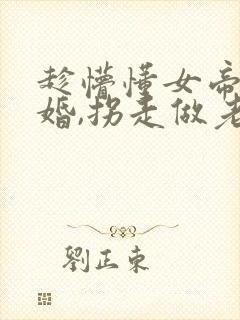 趁懵懂女帝
婚,拐走做老
劉正東